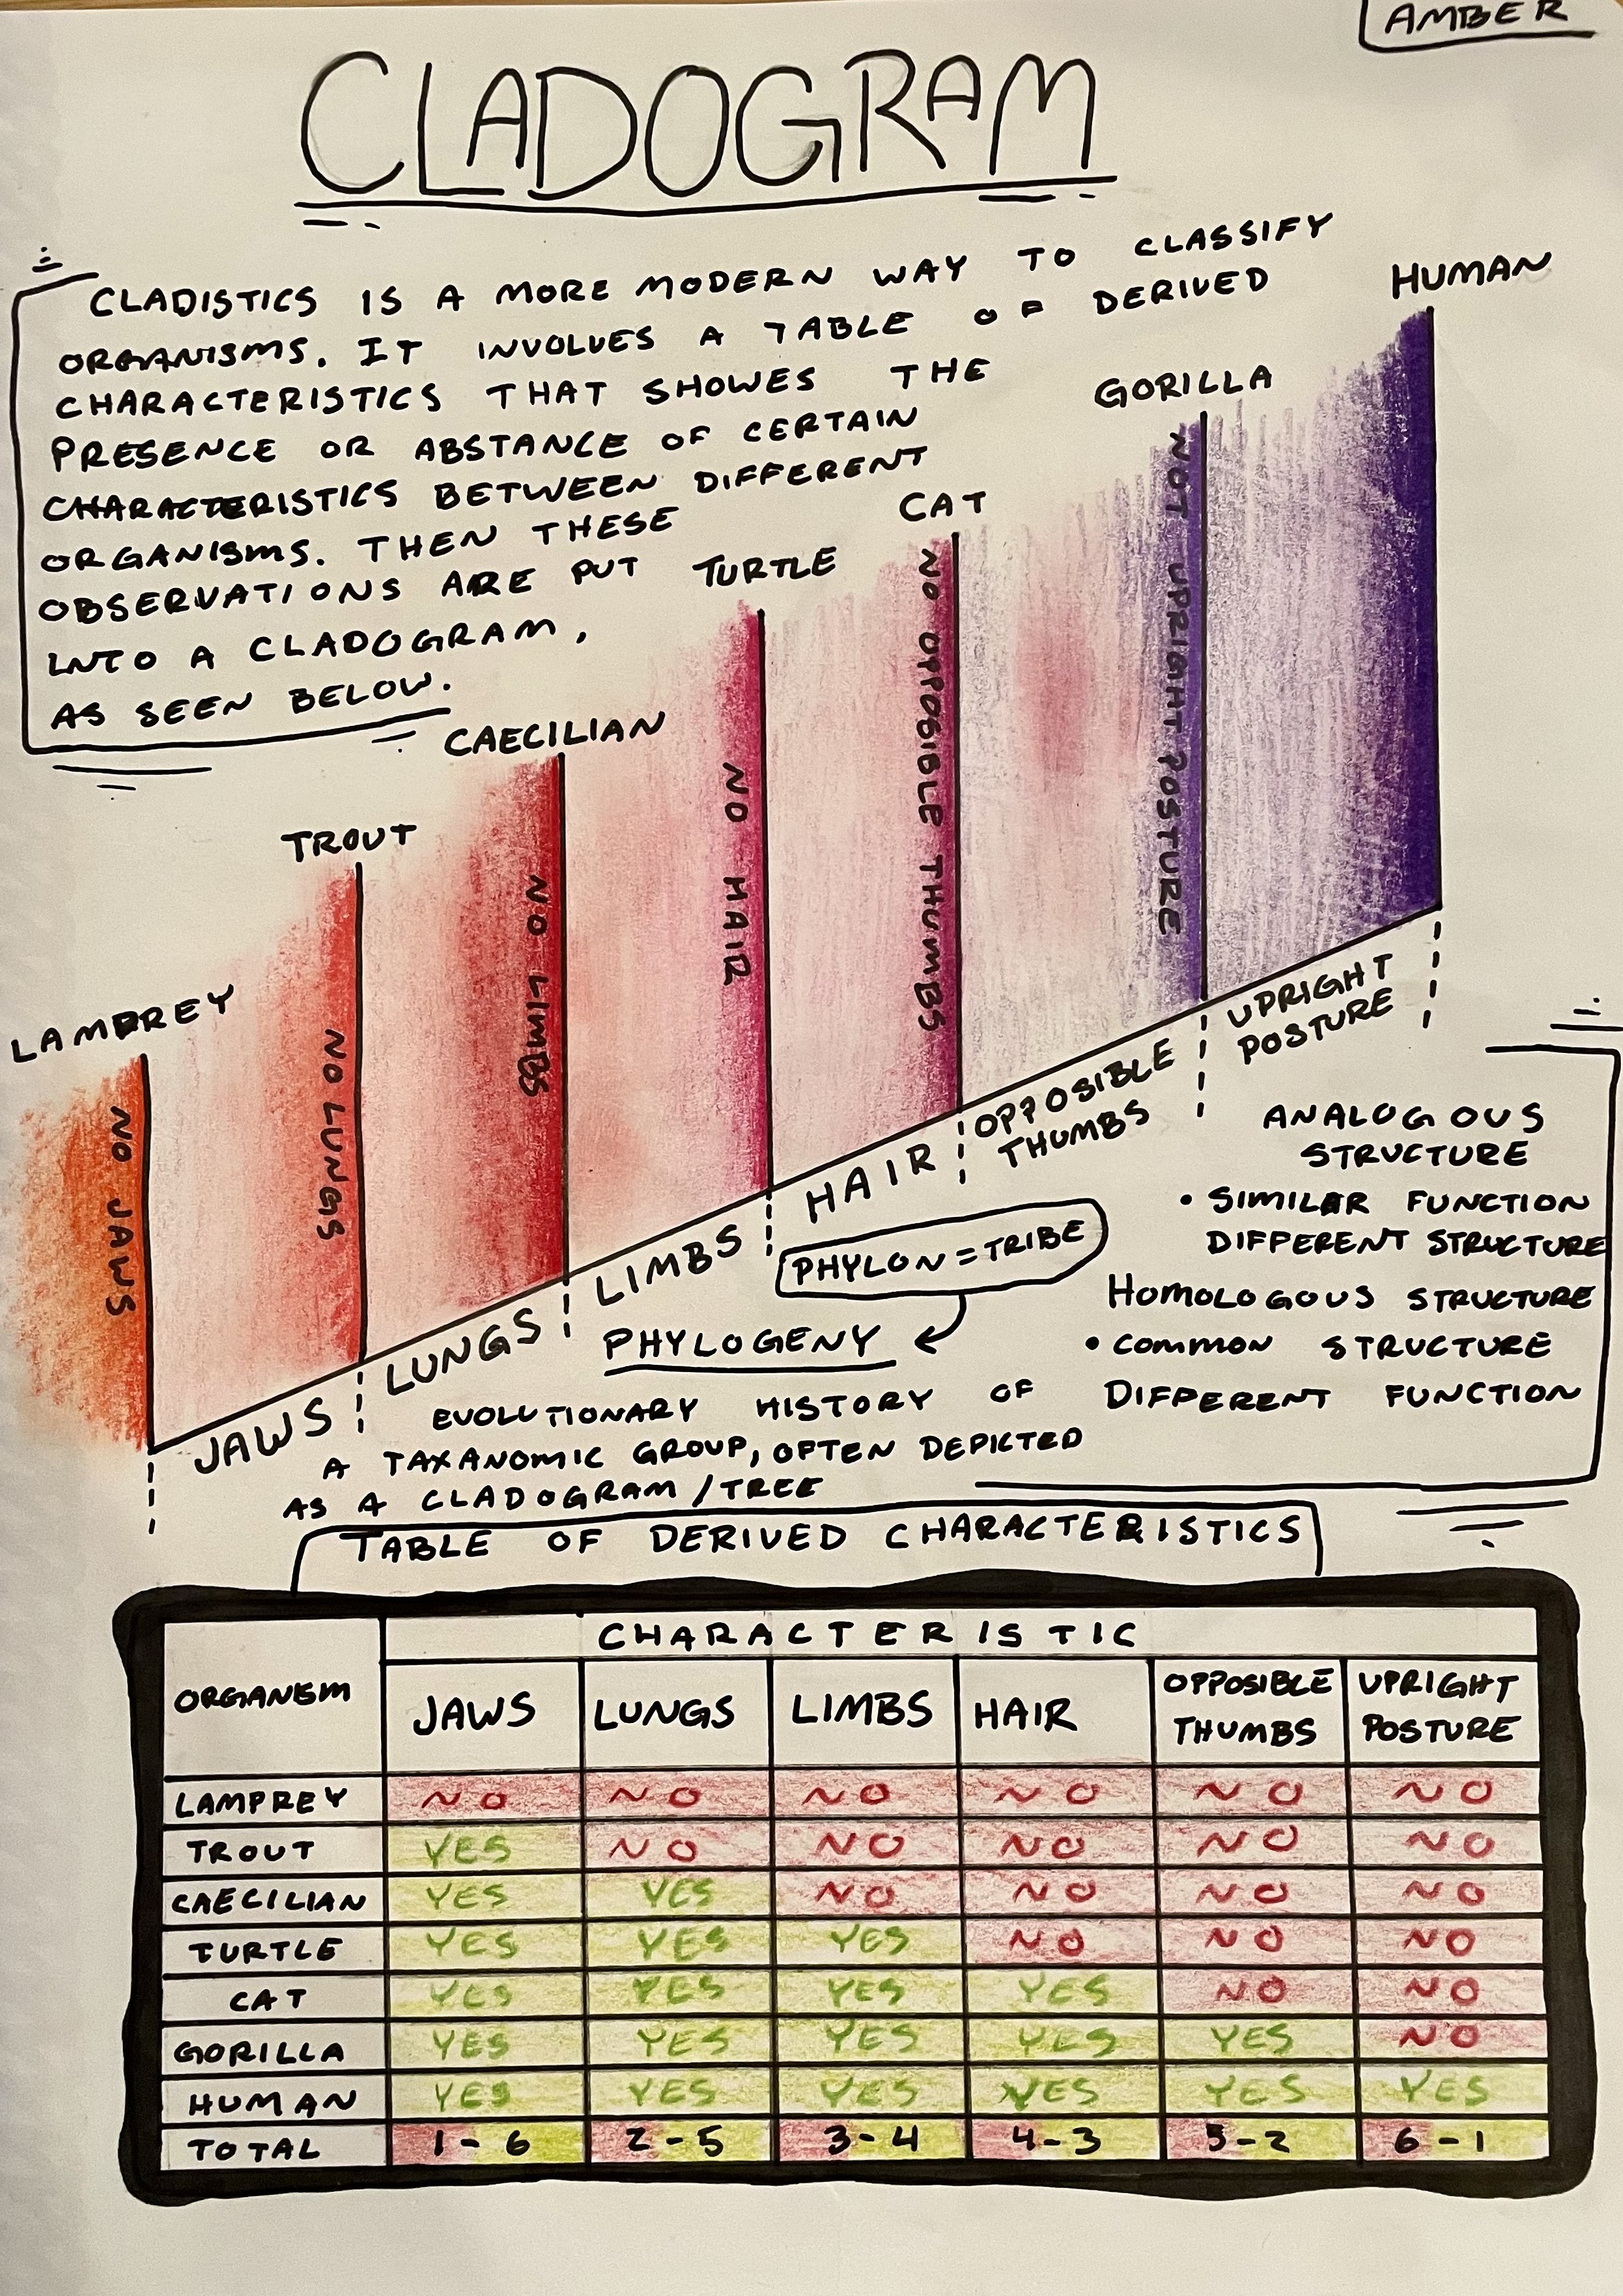 AMBER
CLADOGRAM
CLADISTICS IS A MORE MODERN WAY TO CLASSIFY
ORGANISMS. IT INVOLVES A TABLE OF DERIVED
CHARACTERISTICS THAT SHOWES THE
PRESENCE OR ABSTANCE OF CERTAIN
CHARACTERISTICS BETWEEN DIFFERENT
ORGANISMS. THEN THESE
OBSERVATIONS ARE PUT
INTO A CLADOGRAM,
AS SEEN BELOW.
LAMPREY
TROUT
CAECILIAN
TURTLE
CAT
GORILLA
HUMAN
NO JAWS
NO LUNGS
NO LIMBS
NO HAIR
NO OPPOSIBLE THUMBS
NOT UPRIGHT POSTURE
JAWS
LUNGS
LIMBS
HAIR
OPPOSIBLE
THUMBS
UPRIGHT
POSTURE
PHYLON = TRIBE
PHYLOGENY
EVOLUTIONARY HISTORY OF
A TAXANOMIC GROUP, OFTEN DEPICTED
AS A CLADOGRAM / TREE
ANALOGOUS
STRUCTURE
• SIMILAR FUNCTION
DIFFERENT STRUCTURE
HOMOLOGOUS STRUCTURE
• COMMON STRUCTURE
DIFFERENT FUNCTION
TABLE OF DERIVED CHARACTERISTICS
CHARACTERISTIC
ORGANISM JAWS LUNGS LIMBS HAIR OPPOSIBLE THUMBS UPRIGHT POSTURE
LAMPREY NO NO NO NO NO NO
TROUT YES NO NO NO NO NO
CAECILIAN YES YES NO NO NO NO
TURTLE YES YES YES NO NO NO
CAT YES YES YES YES NO NO
GORILLA YES YES YES YES YES NO
HUMAN YES YES YES YES YES YES
TOTAL 1-6 2-5 3-4 4-3 5-2 6-1